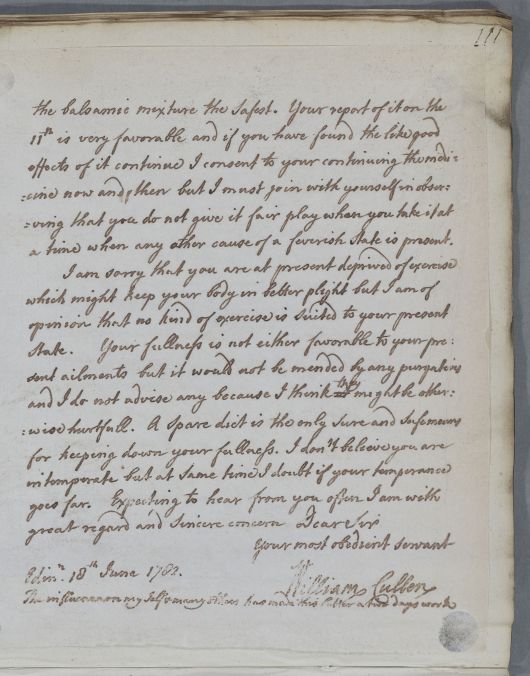 111
the balsamic mixture the safest. Your report of it on the
11th is very favorable and if you have found the like good
effects of it continue I consent to your continuing the medi:
:cine now and then but I must join with yourself in obser:
:ving that you do not give it fair play when you take it at
a time when any other cause of a feverish state is present.
I am sorry that you are at present deprived of exercise
which might keep your body in better plight but I am of
opinion that no kind of exercise is suited to your present
state. Your fullness is not either favorable to your pre:
sent ailments but it would not be mended by any purgatives
and I do not advise any because I think they might be other:
:wise hurtfull. A spare diet is the only sure and safe means
for keeping down your fullness. I don't beleive you are
intemporate but at same time I doubt if your temperance
goes far. Expecting to hear from you often I am with
great regard and sincere concern Dear Sir
Your most obedient servant
Edinr. 18th June 1782.
William Cullen
The influenza on my self & many others has made this letter a two days work